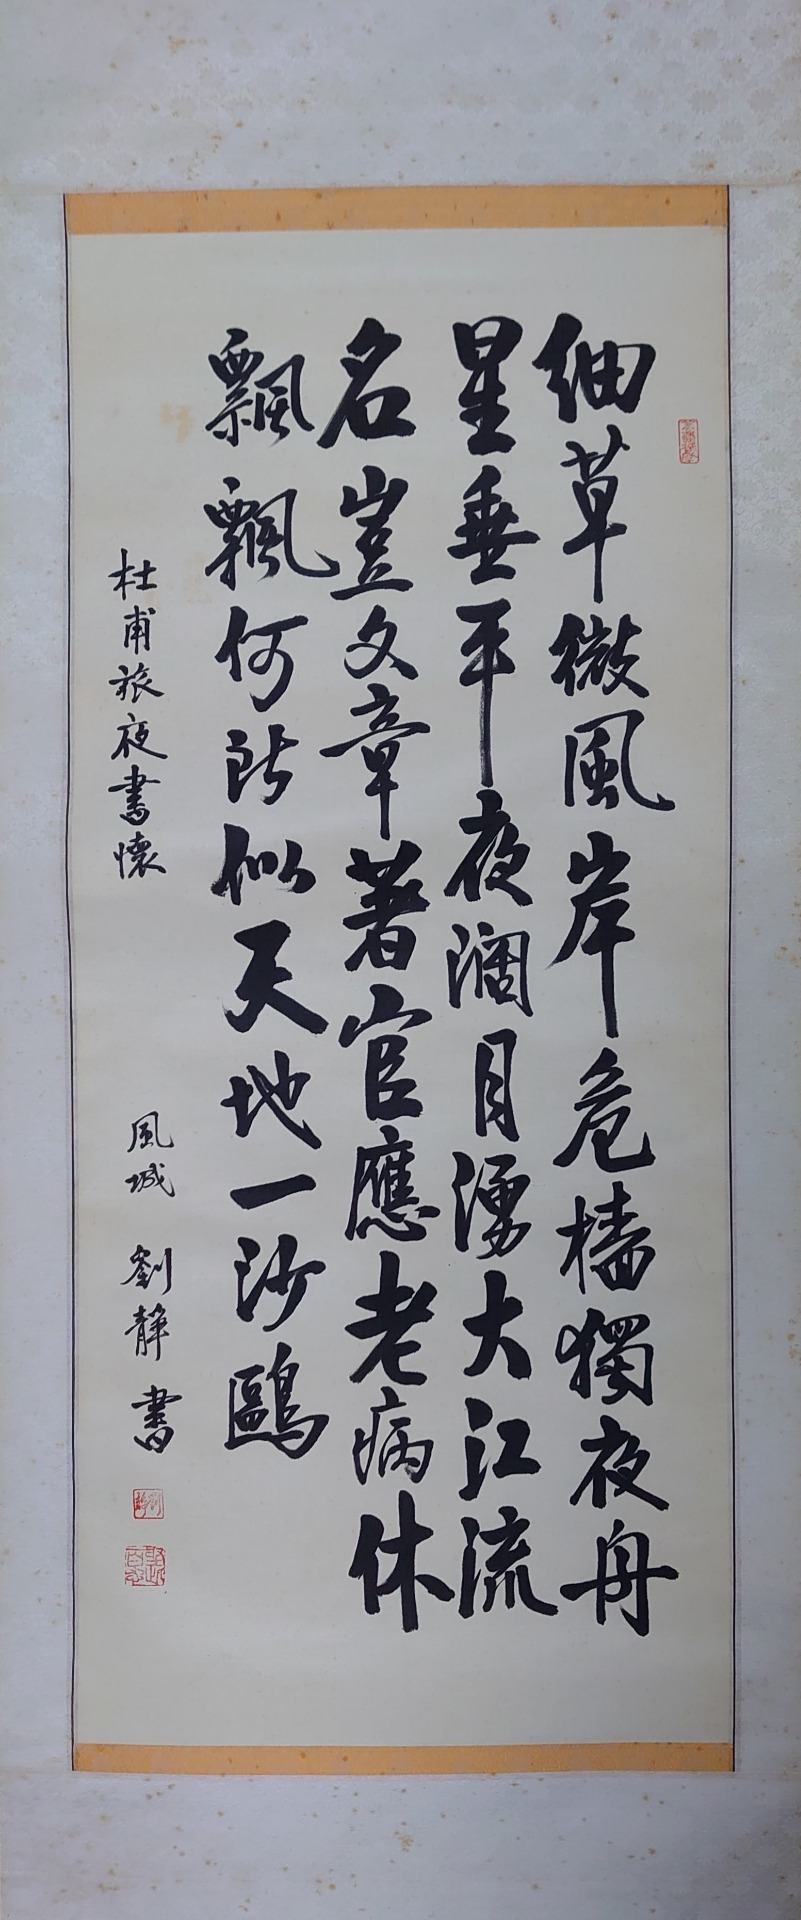 細草微風岸危樯獨夜舟
星垂平夜濶月湧大江流
名豈文章著官應老病休
飄飄何所似天地一沙鷗
杜甫旅夜書懷
風城 劉靜 書